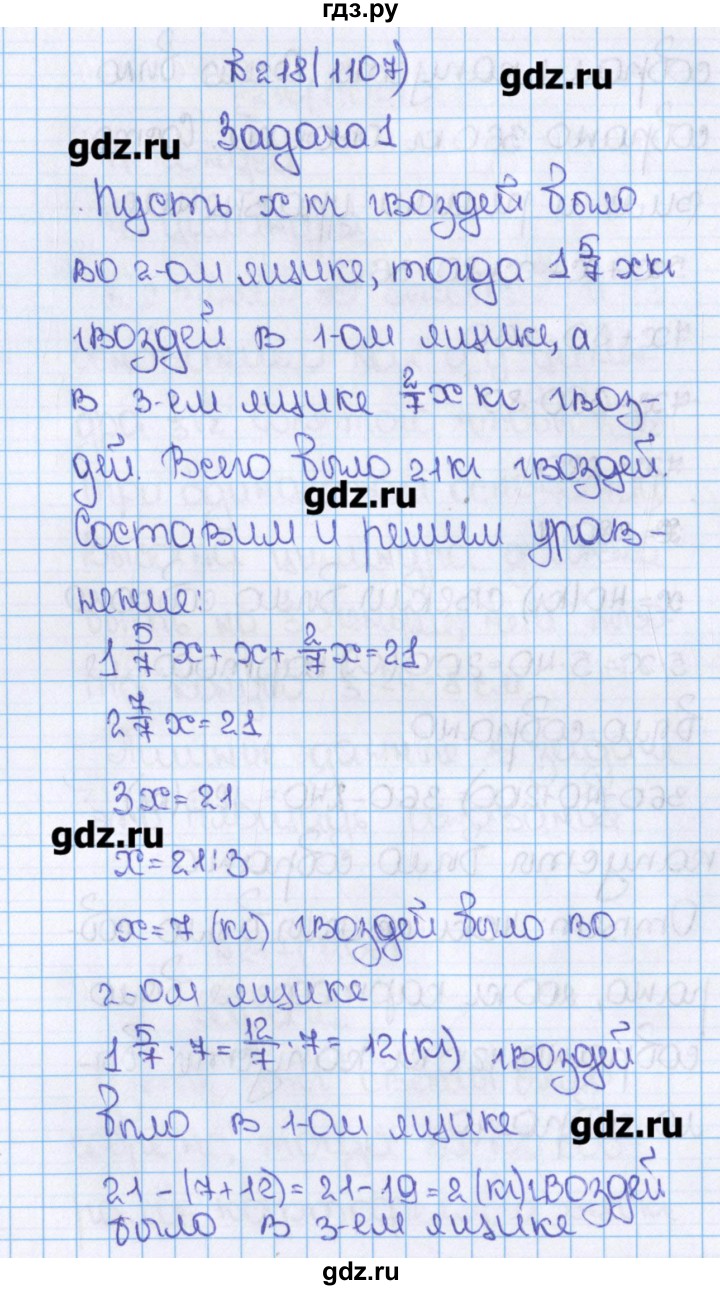 гдз.ру
В 218(1107)
gdz.ru
Задача 1
gdz.ru
Пусть х кг гвоздей было
во 2-ом ящике, тогда 1 5/7 х кг
гвоздей в 1-ом ящике, а
в 3-ем ящике 2/7 х кг гвоз-
дей. Всего было 21 кг гвоздей.
gdz.ru
Составим и решим урав-
нение:
1 5/7 х + х + 2/7 х = 21
2 7/7 х = 21
3х = 21
gdz.ru
х = 21:3
х = 7 (кг) гвоздей было во
2-ом ящике
1 5/7 · 7 = 12/7 · 7 = 12 (кг) гвоздей
было в 1-ом ящике
gdz.ru
21 – (7+12) = 21 – 19 = 2 (кг) гвоздей
было в 3-ем ящике
gdz.ru